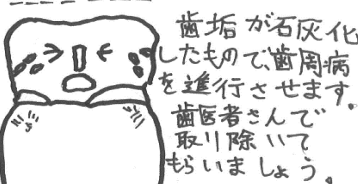 歯垢が石灰化
したもので、歯周病
を進行させます。
歯医者さんで
取り除いて
もらいましょう。